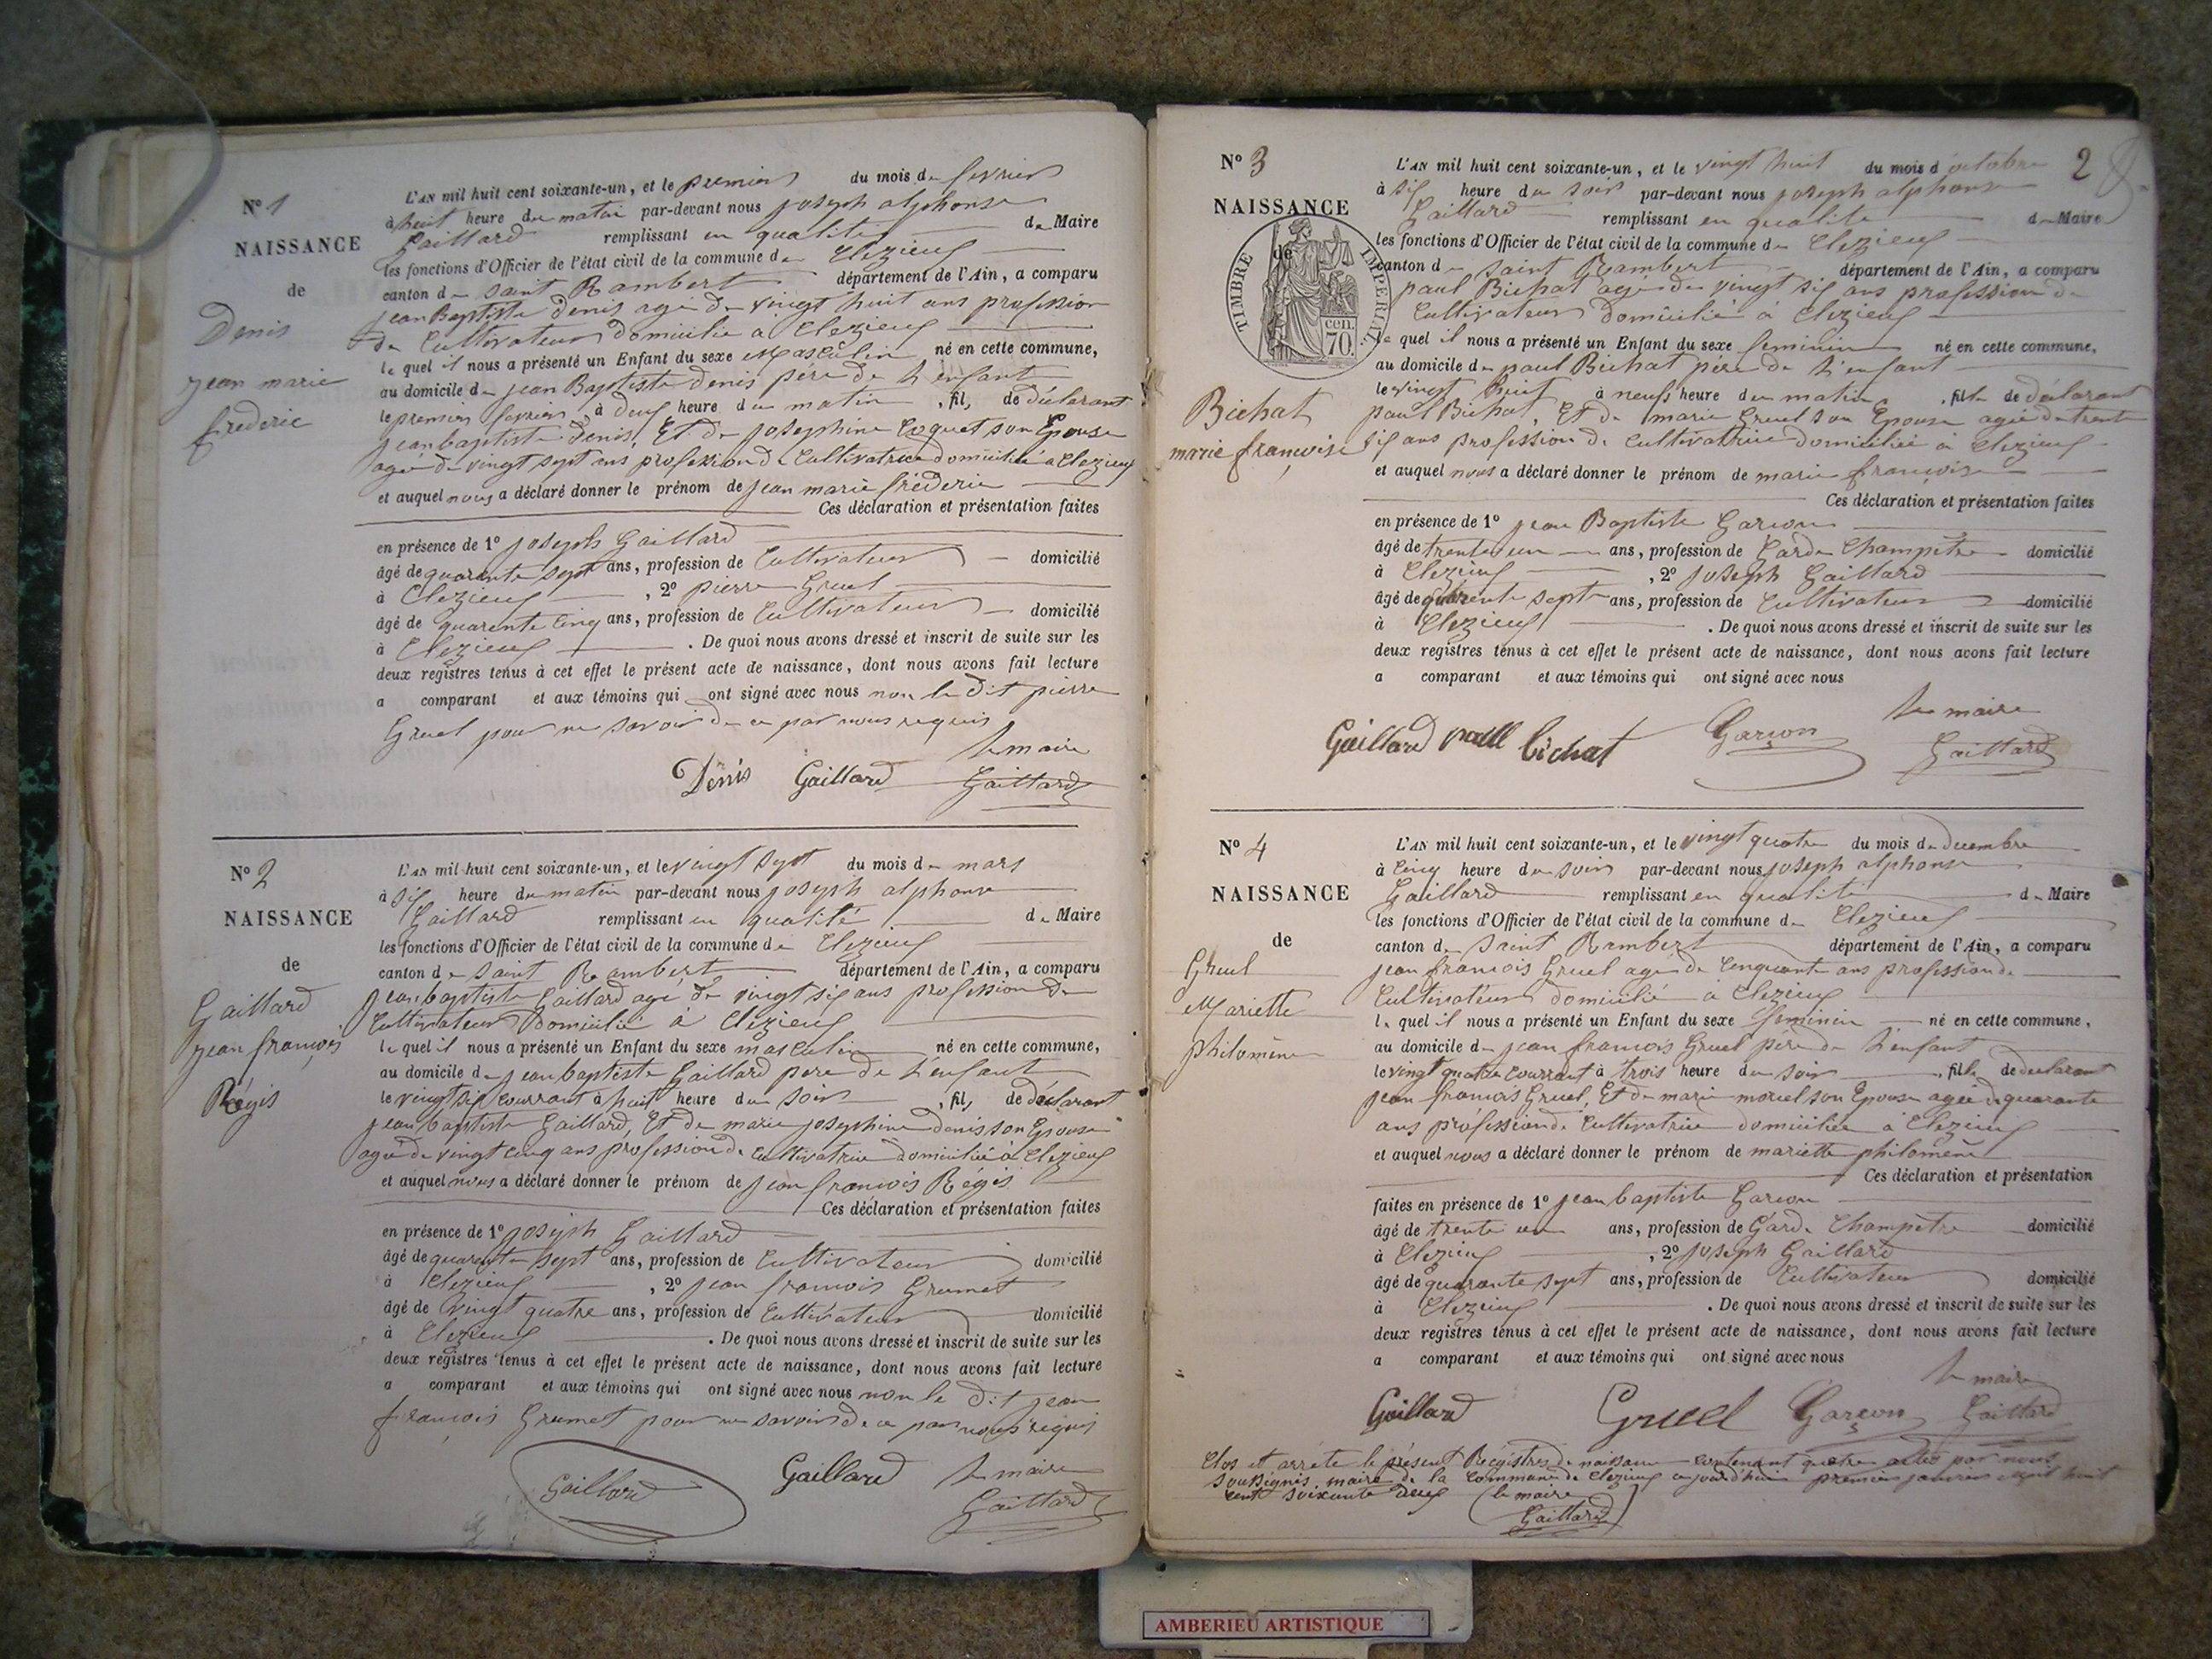 N° 1
NAISSANCE
de
Denis
jean marie
frederic
L'AN mil huit cent soixante-un, et le premier du mois de fevrier
à huit heure du matin par-devant nous joseph alphonse
Gaillard remplissant en qualité de Maire
les fonctions d'Officier de l'état civil de la commune de Clezieux
canton de saint Rambert département de l'Ain, a comparu
jean Baptiste denis agé de vingt huit ans profession
de Cultivateur domicilié à Clezieux
le quel il nous a présenté un Enfant du sexe Masculin né en cette commune,
au domicile de jean Baptiste denis père de l'enfant
le premier fevrier à deux heure du matin, fils de déclarant
jean baptiste Denis, Et de josephine Coquet son Epouse
agée de vingt sept ans profession de Cultivatrice domiciliée à Clezieux
et auquel nous a déclaré donner le prénom de jean marie fréderic
Ces déclaration et présentation faites
en présence de 1° joseph Gaillard
âgé de quarante sept ans, profession de Cultivateur domicilié
à Clezieux, 2° pierre Gruel
âgé de quarente cinq ans, profession de Cultivateur domicilié
à Clezieux. De quoi nous avons dressé et inscrit de suite sur les
deux registres tenus à cet effet le présent acte de naissance, dont nous avons fait lecture
a comparant et aux témoins qui ont signé avec nous non le dit pierre
Gruel pour ne savoir de ce par nous requis
le maire
Denis Gaillard Gaillard
N° 2
NAISSANCE
de
Gaillard
jean françois
Régis
L'AN mil huit cent soixante-un, et le vingt sept du mois de mars
à six heure du matin par-devant nous joseph alphonse
Gaillard remplissant en qualité de Maire
les fonctions d'Officier de l'état civil de la commune de Clezieux
canton de saint Rambert département de l'Ain, a comparu
jean baptiste Gaillard agé de vingt six ans profession de
Cultivateur domicilié à Clezieux
le quel il nous a présenté un Enfant du sexe masculin né en cette commune,
au domicile de jean baptiste Gaillard pere de l'enfant
le vingt six courrant à huit heure du soir, fils de déclarant
jean baptiste Gaillard, Et de marie josephine denis son Epouse
agée de vingt cinq ans profession de cultivatrice domiciliée à Clezieux
et auquel nous a déclaré donner le prénom de jean francois Régis
Ces déclaration et présentation faites
en présence de 1° joseph Gaillard
âgé de quarante sept ans, profession de Cultivateur domicilié
à Clezieux, 2° jean francois Grumet
âgé de vingt quatre ans, profession de Cultivateur domicilié
à Clezieux. De quoi nous avons dressé et inscrit de suite sur les
deux registres tenus à cet effet le présent acte de naissance, dont nous avons fait lecture
a comparant et aux témoins qui ont signé avec nous non le dit jean
françois Grumet pour ne savoir de ce par nous requis
Gaillard Gaillard le maire
Gaillard
2
N° 3
NAISSANCE
de
TIMBRE IMPERIAL
70 cen.
Bichat
marie françoise
L'AN mil huit cent soixante-un, et le vingt huit du mois d octobre
à six heure du soir par-devant nous joseph alphonse
Gaillard remplissant en qualité de Maire
les fonctions d'Officier de l'état civil de la commune de Clezieux
canton de saint Rambert département de l'Ain, a comparu
paul Bichat agé de vingt six ans profession de
Cultivateur domicilié à Clezieux
le quel il nous a présenté un Enfant du sexe feminin né en cette commune,
au domicile de paul Bichat père de l'enfant
le vingt huit à neufs heure du matin, fille de déclarant
paul Bichat, Et de marie Gruel son Epouse agée de trente
six ans profession de cultivatrice domiciliée à Clezieux
et auquel nous a déclaré donner le prénom de marie françoise
Ces déclaration et présentation faites
en présence de 1° jean Baptiste Garcon
âgé de trente un ans, profession de Garde Champètre domicilié
à Clezieux, 2° joseph Gaillard
âgé de quarente sept ans, profession de Cultivateur domicilié
à Clezieux. De quoi nous avons dressé et inscrit de suite sur les
deux registres tenus à cet effet le présent acte de naissance, dont nous avons fait lecture
a comparant et aux témoins qui ont signé avec nous
le maire
Gaillard paull bichat Garçon Gaillard
N° 4
NAISSANCE
de
Gruel
Mariette
philomène
L'AN mil huit cent soixante-un, et le vingt quatre du mois de decembre
à cinq heure du soir par-devant nous joseph alphonse
Gaillard remplissant en qualité de Maire
les fonctions d'Officier de l'état civil de la commune de Clezieux
canton de saint Rambert département de l'Ain, a comparu
jean francois Gruel agé de cinquante ans profession de
Cultivateur domicilié à Clezieux
le quel il nous a présenté un Enfant du sexe feminin né en cette commune,
au domicile de jean francois Gruel père de l'enfant
le vingt quatre courrant à trois heure du soir, fille de declarant
jean francois Gruel, Et de marie moruel son Epouse agée de quarante
ans profession de Cultivatrice domiciliée à Clezieux
et auquel nous a déclaré donner le prénom de mariette philomène
Ces déclaration et présentation
faites en présence de 1° jean baptiste Garcon
âgé de trente un ans, profession de Garde Champètre domicilié
à Clezieux, 2° joseph Gaillard
âgé de quarante sept ans, profession de Cultivateur domicilié
à Clezieux. De quoi nous avons dressé et inscrit de suite sur les
deux registres tenus à cet effet le présent acte de naissance, dont nous avons fait lecture
a comparant et aux témoins qui ont signé avec nous
le maire
Gaillard Gruel Garçon Gaillard
Clos et arrete le présent Régistres de naissance contenant quatre actes par nous
soussignés maire de la Commune de Clezieux aujourd'hui premier janvier mil huit
cent soixante deux le maire
Gaillard
AMBERIEU ARTISTIQUE